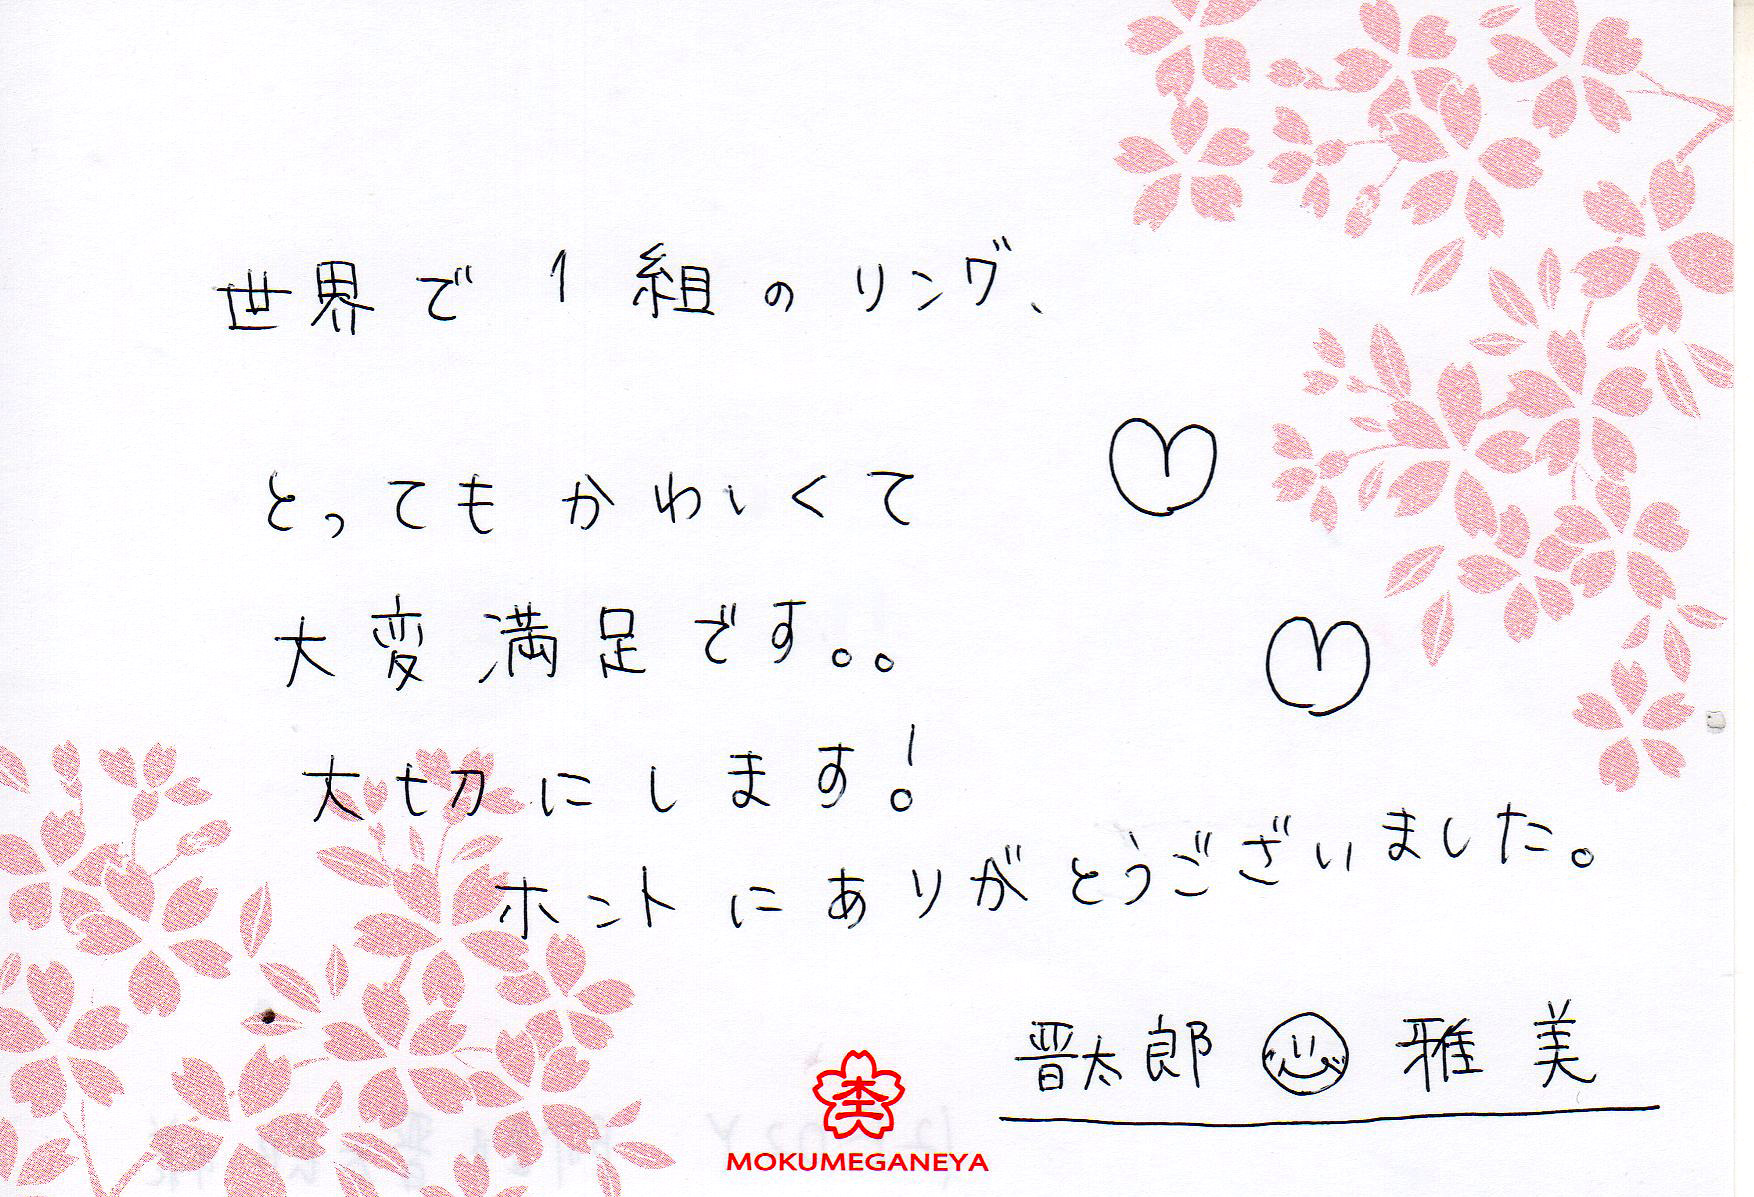 世界で1組のリング、
とってもかわいくて
大変満足です。。
大切にします!
ホントにありがとうございました。
晋太郎 雅美
MOKUMEGANEYA